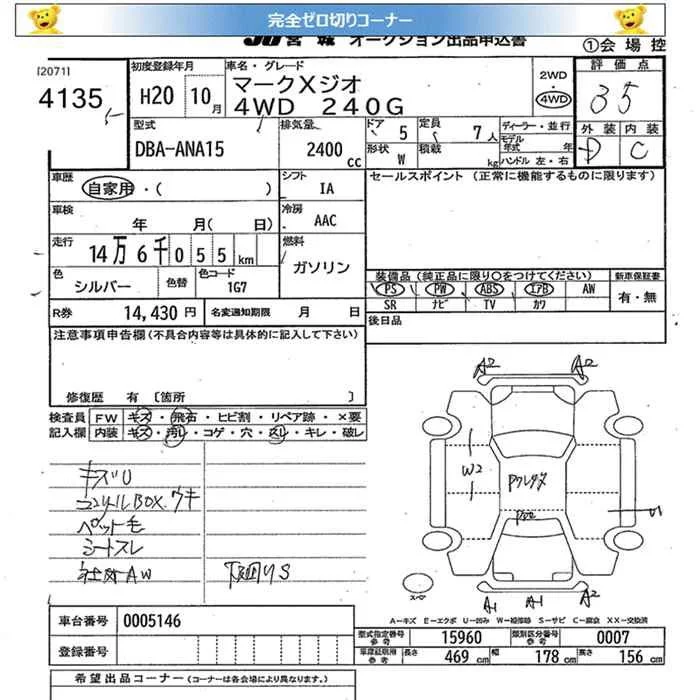 完全ゼロ切りコーナー
JU宮城 オークション出品申込書
①会場控
[2071]
4135
初度登録年月
H20 10月
車名・グレード
マークXジオ
4WD 240G
2WD
4WD
評価点
35
外装 内装
D C
型式
DBA-ANA15
排気量
2400cc
ドア 5
定員 7人
形状 W
積載 kg
ディーラー・並行
モデル年式 年
ハンドル 左・右
車歴
自家用・( )
シフト
IA
セールスポイント (正常に機能するものに限ります)
車検
年 月( 日)
冷房
AAC
走行
14万6千055km
燃料
ガソリン
色
シルバー
色替
色コード
1G7
装備品(純正品に限り○をつけてください)
新車保証書
PS PW ABS エアB AW
SR ナビ TV カワ
有・無
R券 14,430円
名変通知期限 月 日
後日品
注意事項申告欄(不具合内容等は具体的に記入して下さい)
修復歴 有 [箇所 ]
検査員 FW キズ・飛石・ヒビ割・リペア跡・×要
記入欄 内装 キズ・汚レ・コゲ・穴・スレ・キレ・破レ
キズU
コンソールBOXウキ
ペット毛
シートスレ
社外AW
下廻りS
A2 A2
W2
U
A1 A1 A2
スペア
A-キズ E-エクボ U-凹み W-補修跡 S-サビ C-腐食 XX-交換済
車台番号 0005146
登録番号
型式指定番号参考 15960
類別区分番号参考 0007
車庫証明用参考
長さ 469cm
幅 178cm
高さ 156cm
希望出品コーナー(コーナーは各会場により異なります。)